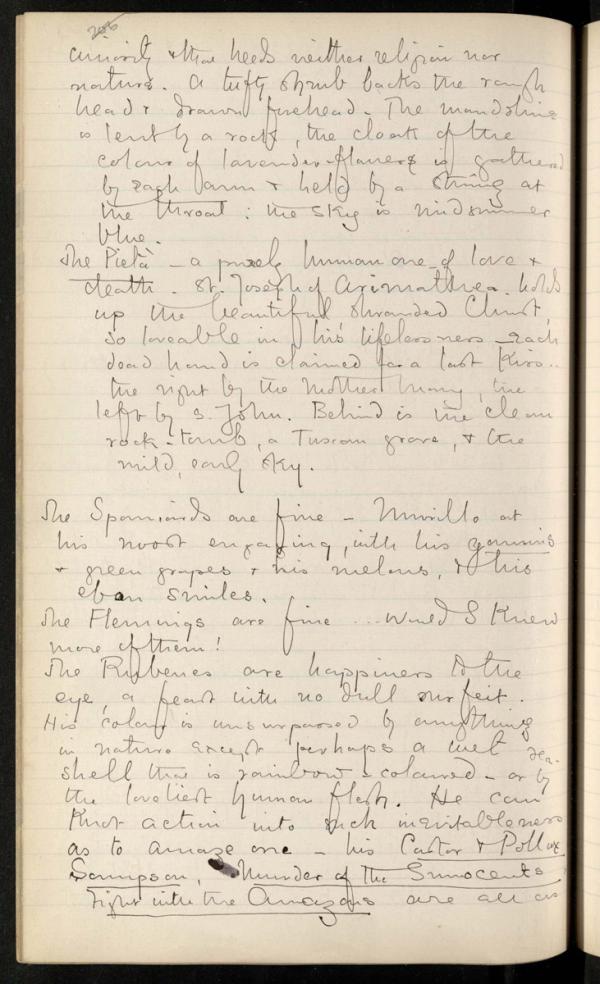 206
curiosity & that heeds neither religion nor
nature. A tufty shrub backs the rough
head & drawn forehead. The mandoline
is lent by a rock, the cloak of the
colour of lavender-flowers is gathered
by each arm & held by a string at
the throat: the sky is midsummer
blue.
The Pietà – a purely human one of love &
death. St. Joseph of Arimathea holds
up the beautiful shrouded Christ,
so loveable in his lifelessness – each
dead hand is claimed for a last kiss..
the right by the Mother Mary, the
left by S. John. Behind is the clean
rock-tomb, a Tuscan grove, & the
mild, early sky.
The Spaniards are fine – Murillo at
his most engaging, with his gamins
& green grapes & his melons, & his
ebon smiles.
The Flemings are fine ... would I knew
more of them!
The Rubenes are happiness to the
eye, a feast with no dull surfeit.
His colour is unsurpassed by anything
in nature except perhaps a wet sea-
shell that is rainbow-coloured – or by
the loveliest human flesh. He can
knot action into such inevitableness
as to amaze one – his Castor & Pollux
Sampson, Murder of the Innocents
Fight with the Amazons are all as